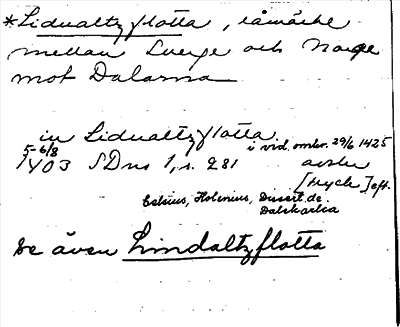 *Liduvaltzflotta, råmärke
mellan Sverge och Norge
mot Dalarna
in Liduvaltzflotta
i vid. omkr. 29/6 1425
5-6/8
1403 SDns 1, s. 281 avskr
[tryck] eft.
Celsius, Holenius, Dissert. de
Dalekarlia
Se även Lindaltzflotta